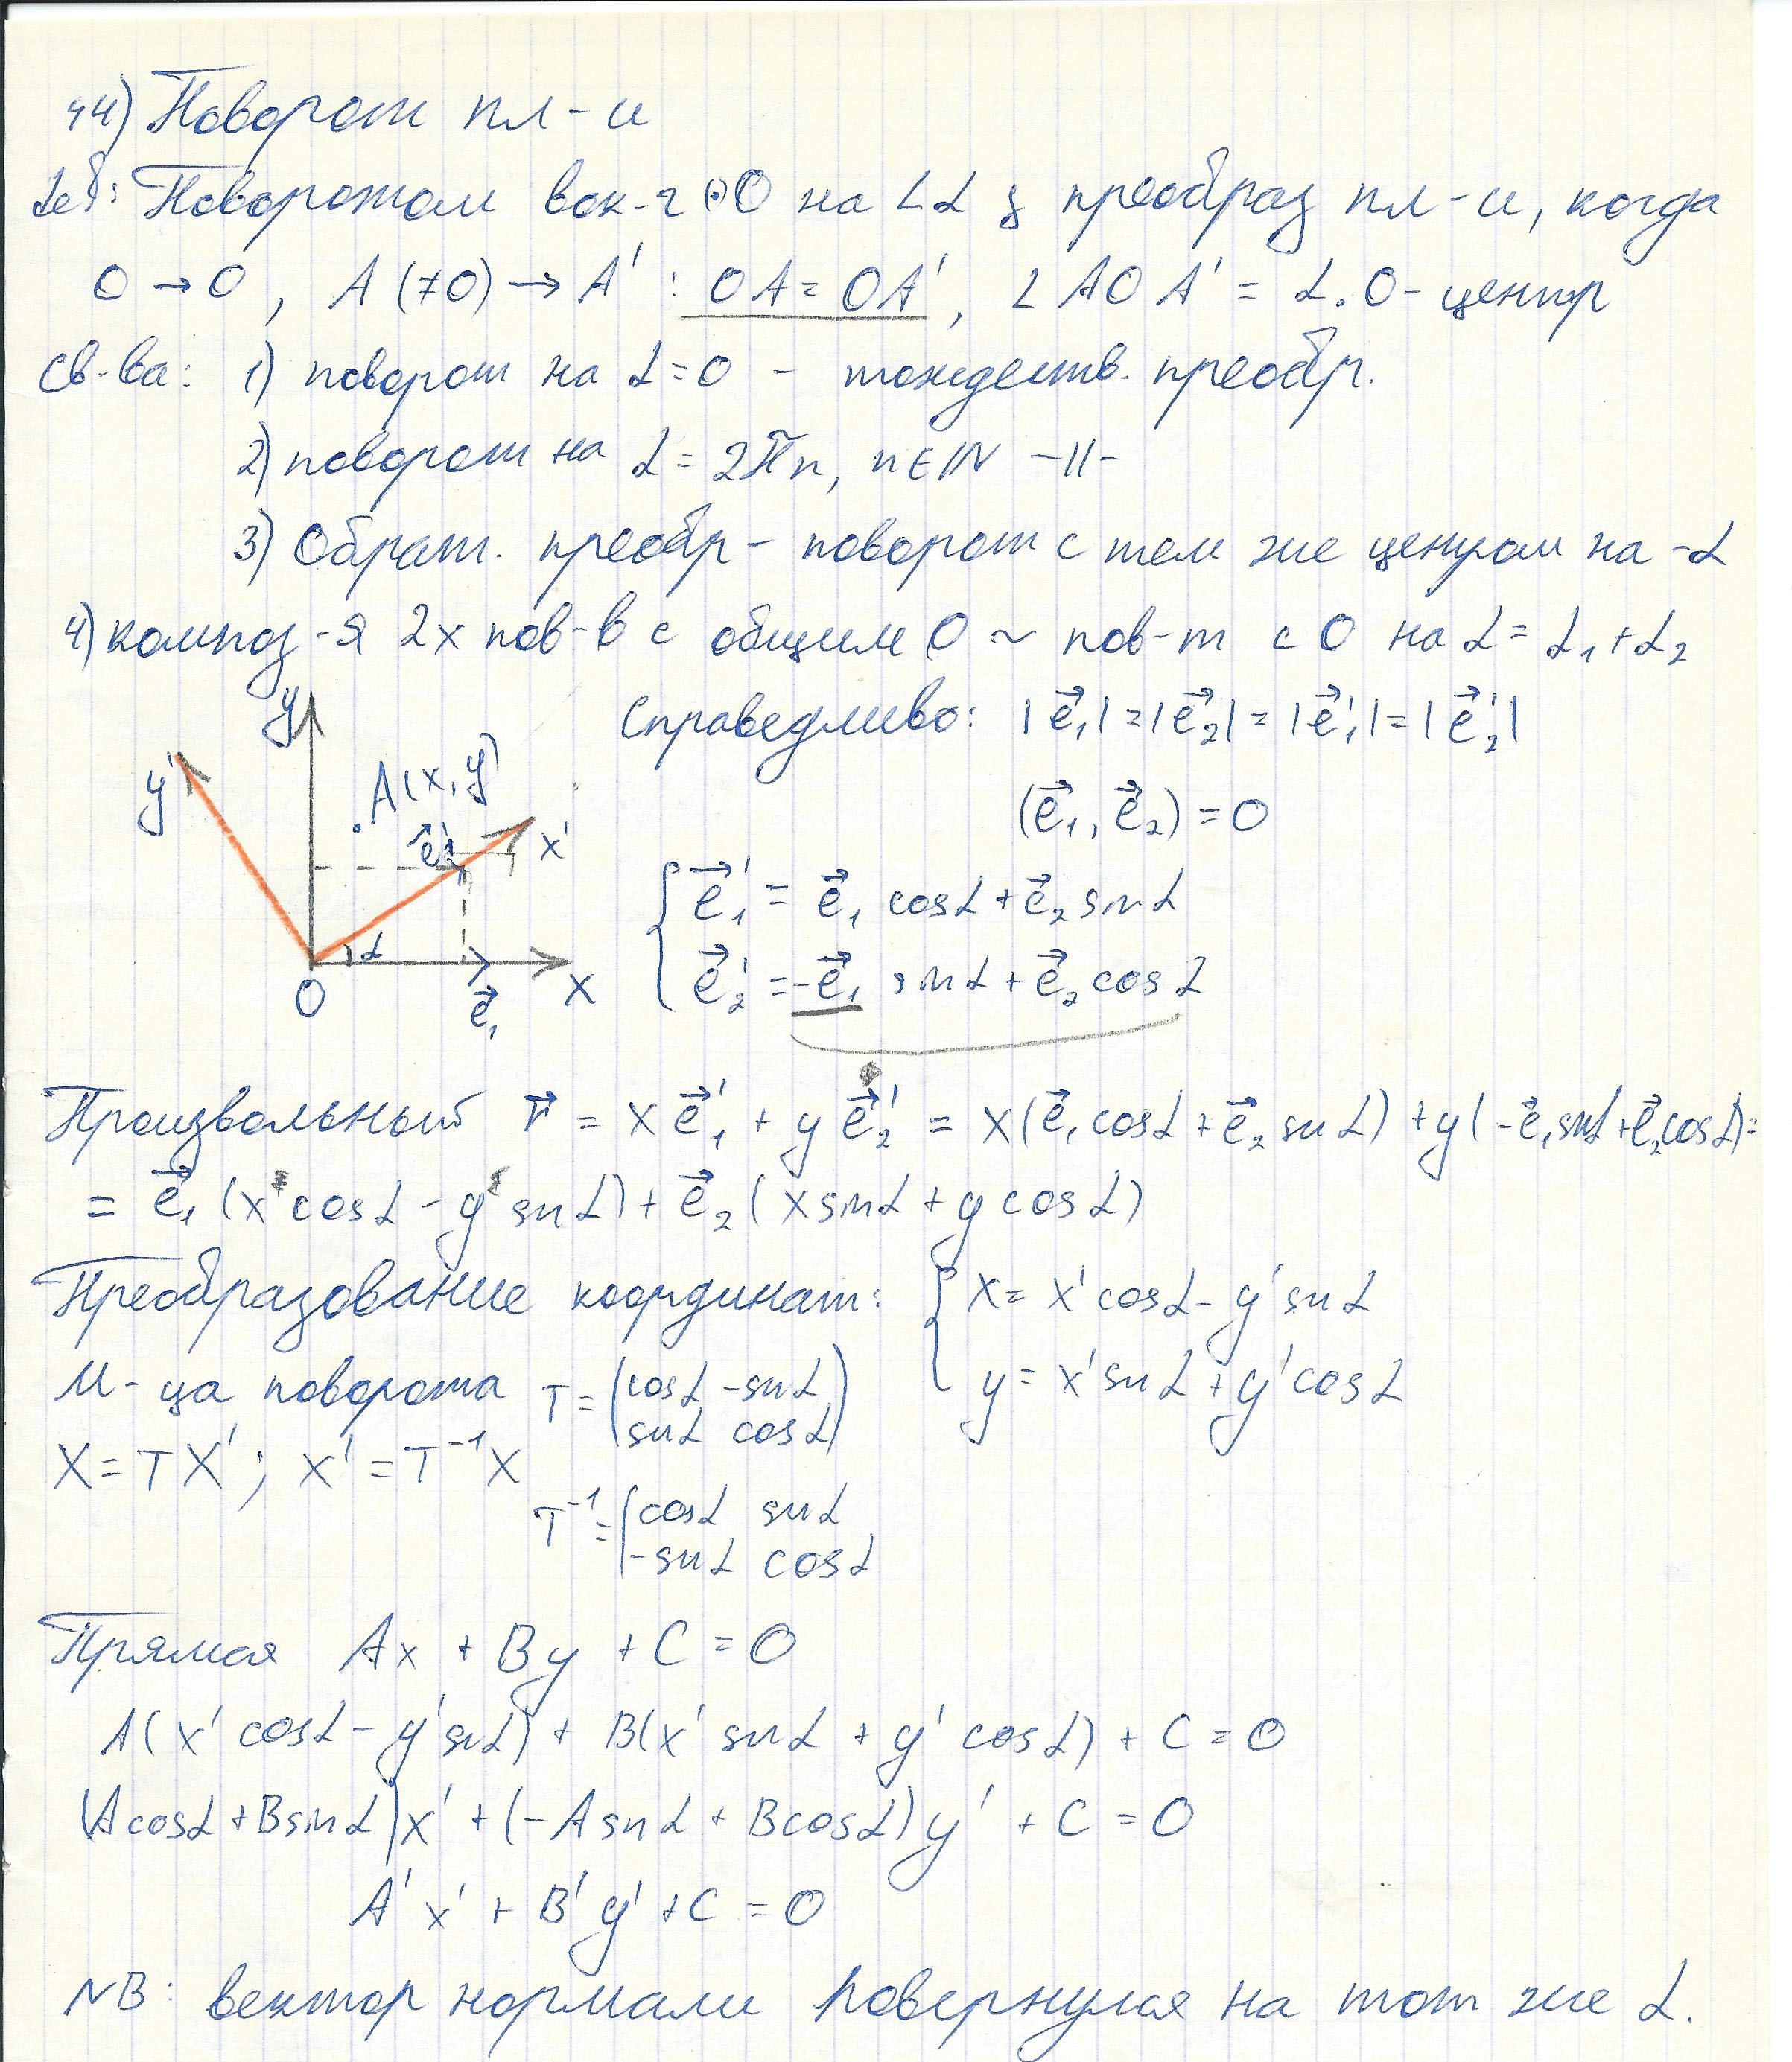 44) Поворот пл-и
Def: Поворотом вок-г (·)O на ∠α з преобраз пл-и, когда
O → O, A (≠O) → A' : OA = OA', ∠AOA' = α. O - центр
Св-ва: 1) поворот на α = 0 - тождеств. преобр.
2) поворот на α = 2πn, n∈ℕ -||-
3) Обрат. преобр - поворот с тем же центром на -α
4) композ-я 2х пов-в с общим O ~ пов-т с O на α = α₁ + α₂
Справедливо: |e⃗₁| = |e⃗₂| = |e⃗₁'| = |e⃗₂'|
(e⃗₁, e⃗₂) = 0
y
y'
A(x, y)
e⃗₁'
x'
α
O
e⃗₁
x
{ e⃗₁' = e⃗₁ cosα + e⃗₂ sinα
e⃗₂' = -e⃗₁ sinα + e⃗₂ cosα
Произвольный r⃗ = x e⃗₁' + y e⃗₂' = x(e⃗₁ cosα + e⃗₂ sinα) + y(-e⃗₁ sinα + e⃗₂ cosα) =
= e⃗₁ (x cosα - y sinα) + e⃗₂ (x sinα + y cosα)
Преобразование координат: { x = x' cosα - y' sinα
y = x' sinα + y' cosα
М-ца поворота T = (cosα -sinα
sinα cosα)
X = TX' ; X' = T⁻¹X
T⁻¹ = (cosα sinα
-sinα cosα
Прямая Ax + By + C = 0
A(x' cosα - y' sinα) + B(x' sinα + y' cosα) + C = 0
(A cosα + B sinα)x' + (-A sinα + B cosα)y' + C = 0
A'x' + B'y' + C = 0
NB: вектор нормали повернулся на тот же α.